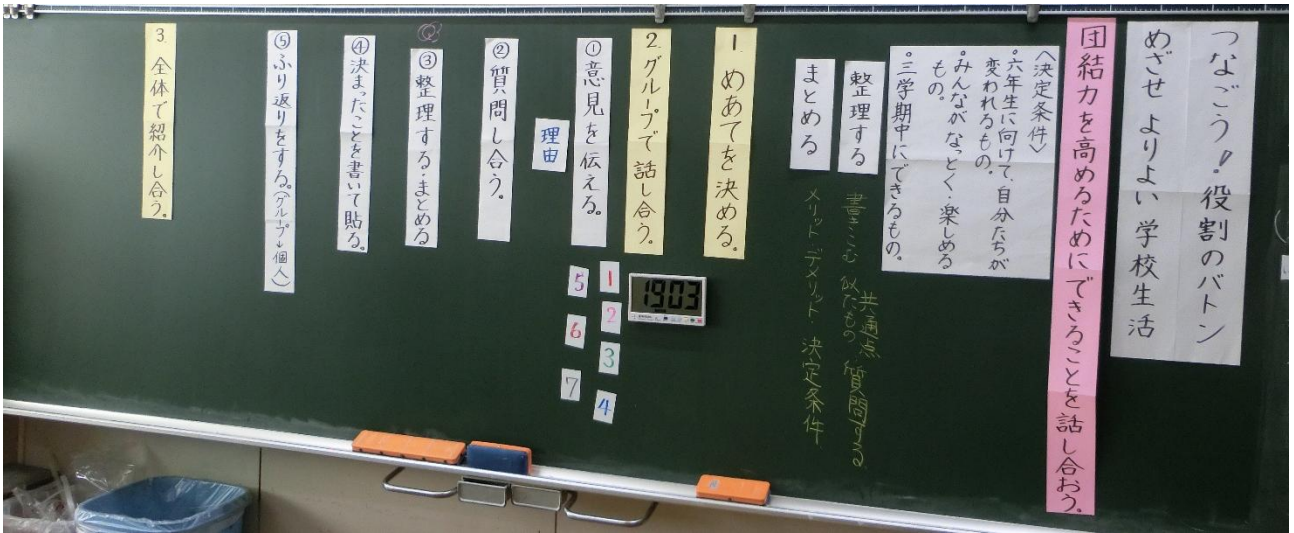 つなごう！役割のバトン
めざせ よりよい 学校生活
団結力を高めるためにできることを話し合おう。
〈決定条件〉
・六年生に向けて、自分たちが
変われるもの。
・みんなが なっとく・楽しめる
もの。
・三学期中にできるもの。
整理する
書きこむ 似たもの 共通点 質問する
まとめる
メリット・デメリット・決定条件
1. めあてを決める。
2. グループで話し合う。
① 意見を伝える。
理由
② 質問し合う。
③ 整理する・まとめる
④ 決まったことを書いて貼る。
⑤ ふり返りをする。(グループ→個人)
3. 全体で紹介し合う。
1
2
3
4
5
6
7
1903